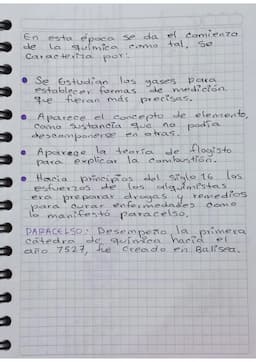 En esta época se da el comienzo
de la química como tal, se
caracteriza por:
• Se Estudian los gases para
establecer formas de medición
que fueran más precisas.
• Aparece el concepto de elemento,
como sustancia que no podía
descomponerse en otras.
• Aparece la teoría de flogisto
para explicar la combustión.
• Hacia principios del siglo 16 los
esfuerzos de los alquimistas
era preparar drogas y remedios
para curar enfermedades como
lo manifestó paracelso.
PARACELSO: Desempeño la primera
cátedra de química hacia el
año 7527, fue creado en Balisea.